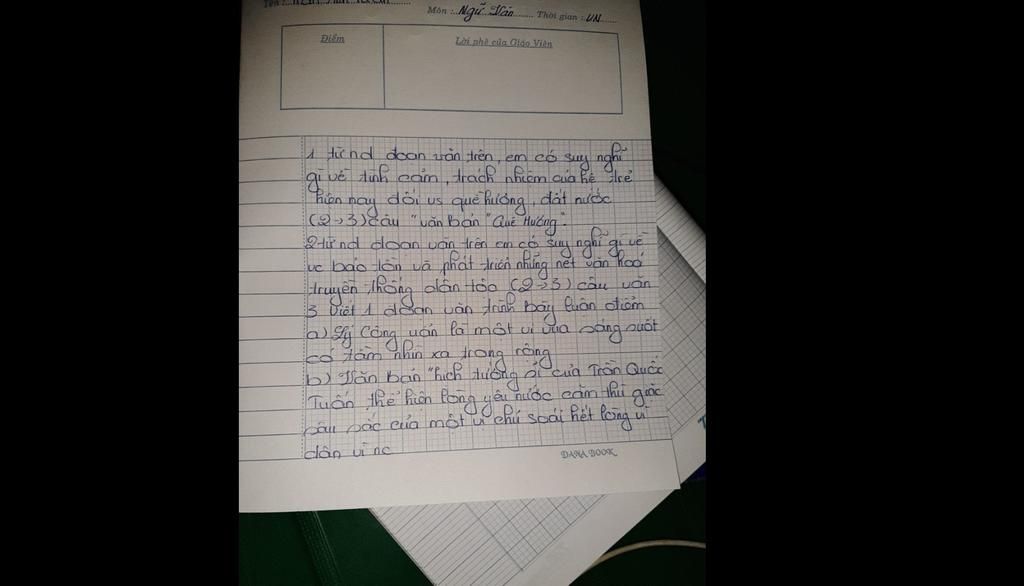 Tên :
Môn : Ngữ Văn Thời gian : VN
Điểm
Lời phê của Giáo Viên
1 từ nd đoạn văn trên, em có suy nghĩ
gì về tình cảm, trách nhiệm của hệ trẻ
hiện nay đối vs quê hương, đất nước
(2→3) câu "văn bản "Quê Hương".
2 từ nd đoạn văn trên em có suy nghĩ gì về
vc bảo tồn và phát triển những nét văn hoá
truyền thống dân tộc (2→3) câu văn
3 Viết 1 đoạn văn trình bày luận điểm
a) Lý Công uẩn là một vị vua sáng suốt
có tầm nhìn xa trong rộng
b) Văn bản "hịch tướng sĩ của Trần Quốc
Tuấn thể hiện lòng yêu nước căm thù giặc
sâu sắc của một vị chủ soái hết lòng vì
dân vì nc
DANA BOOK